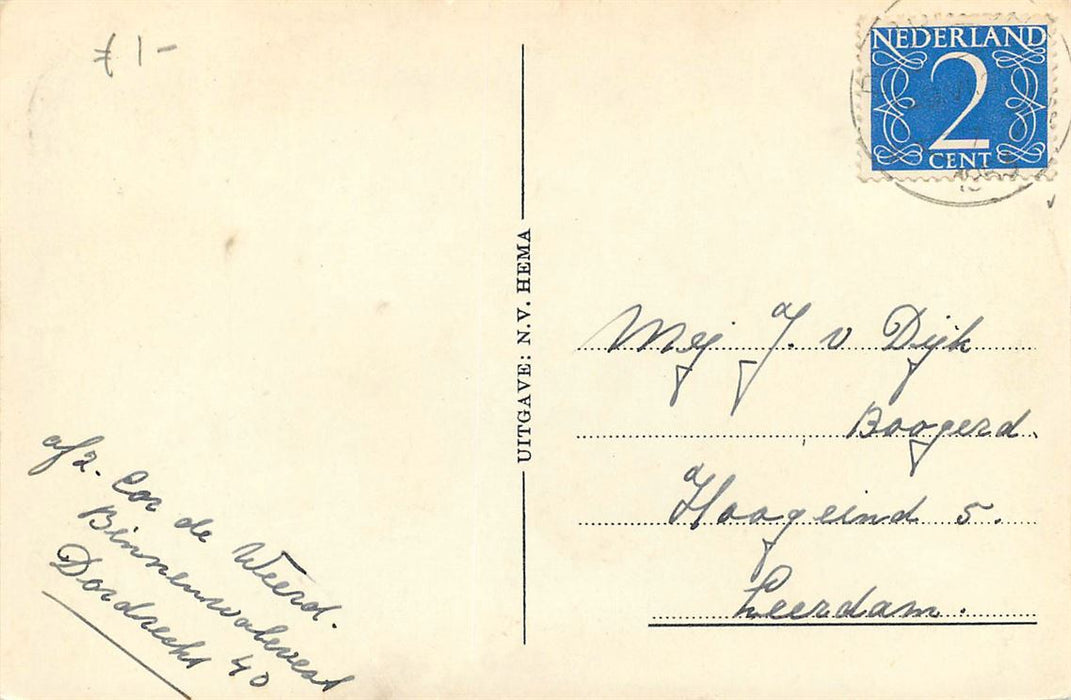 £ 1-
NEDERLAND
2
CENT
UITGAVE: N.V. HEMA
Mej J. v Dijk
Boogerd
Hoogeind 5.
Leerdam.
afz. Cor de Weerd.
Binnenwalevest
Dordrecht 40